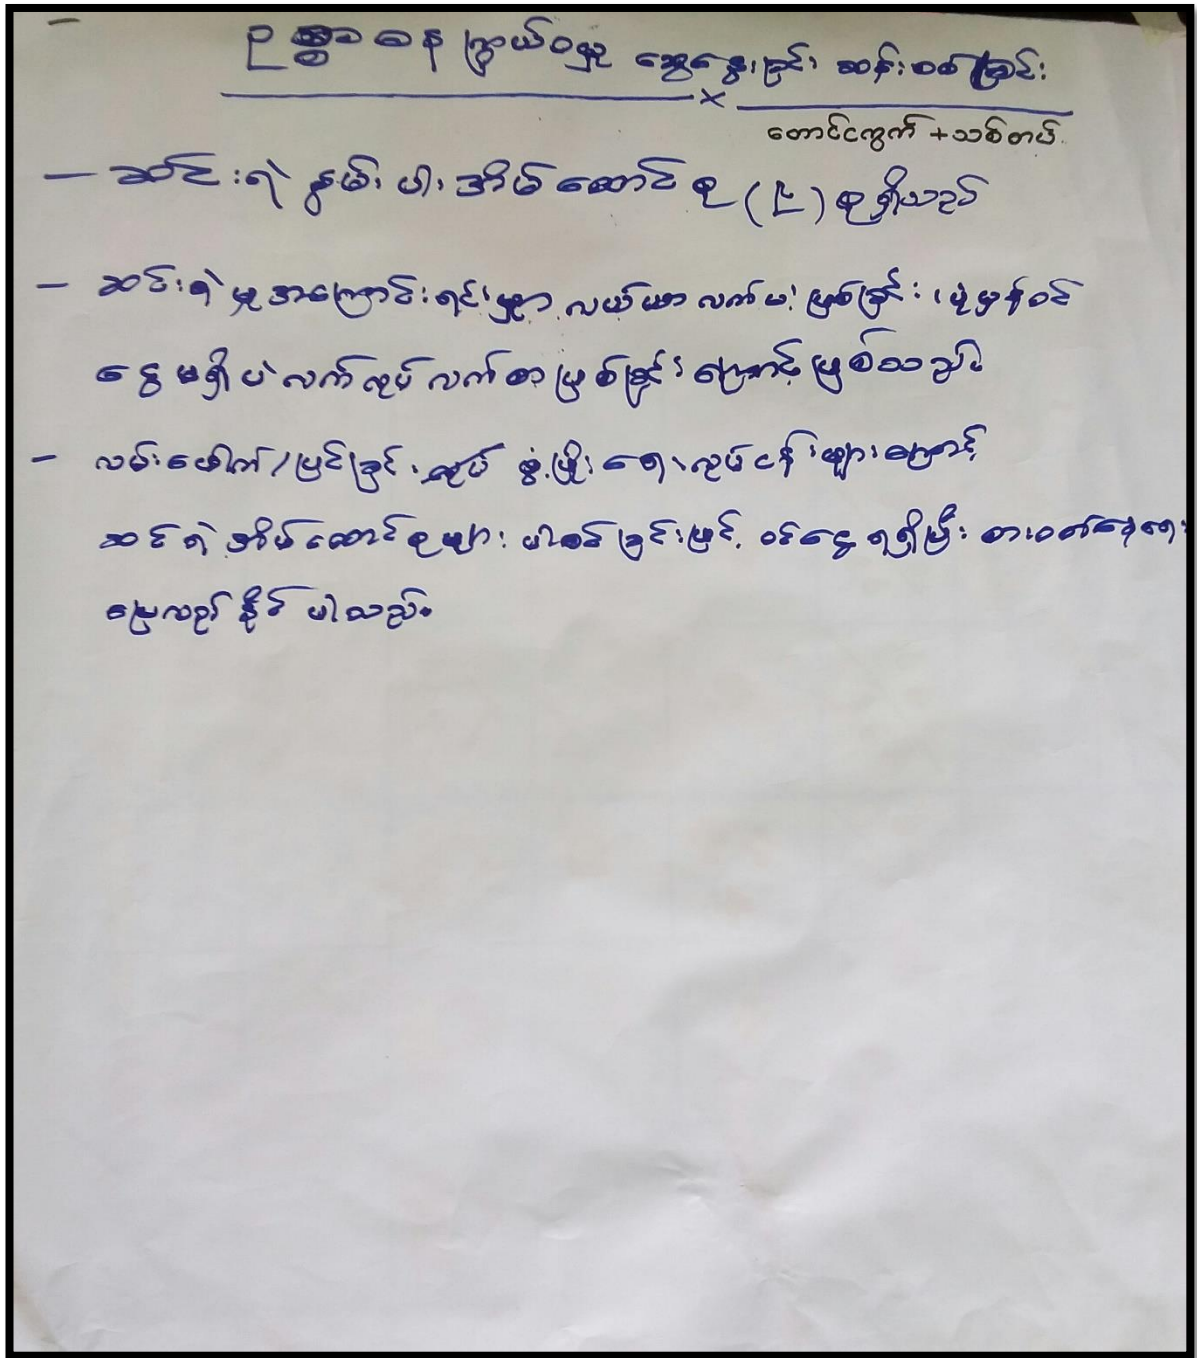 ဥစ္စာဓန ကြွယ်ဝမှု ဆွေးနွေးခြင်း ဆန်းစစ်ခြင်း
တောင်ငကွက် + သစ်တပ်
— ဆင်းရဲ နွမ်းပါး အိမ်ထောင်စု (၉) စုရှိသည်
- ဆင်းရဲမှုအကြောင်းရင်းမှာ လယ်ယာလက်မဲ့ဖြစ်ခြင်း၊ ပုံမှန်ဝင်
ငွေမရှိပဲ လက်လုပ်လက်စားဖြစ်ခြင်းကြောင့်ဖြစ်သည်။
- လမ်းဖေါက်/ပြင်ခြင်း ဖွံ့ဖြိုးရေးလုပ်ငန်းများကြောင့်
ဆင်းရဲအိမ်ထောင်စုများ ပါဝင်ခြင်းဖြင့် ဝင်ငွေရရှိပြီး စားဝတ်နေရေး
ပြေလည်နိုင်ပါသည်။